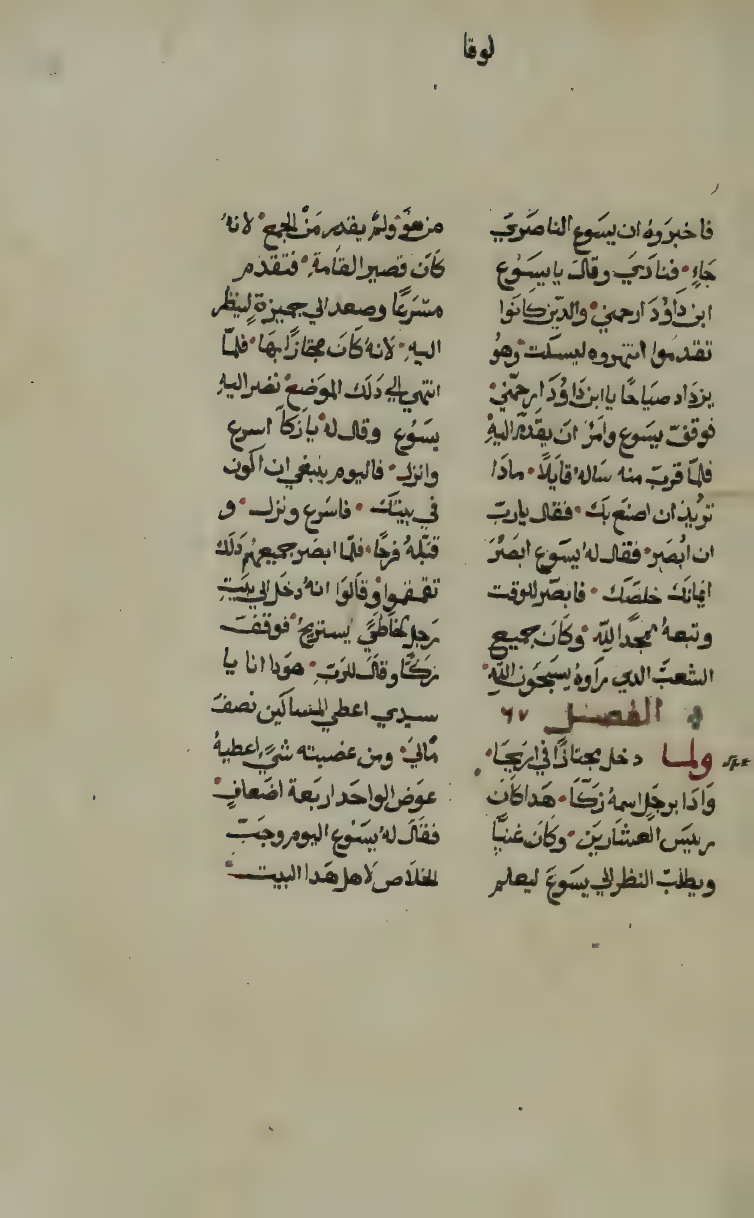 لوقا
فاخبروه ان يسوع الناصري
جاء فنادي وقال يا يسوع
ابن داوود ارحمني والدين كانوا
تقدموا انتهروه ليسكت وهو
يزداد صياحا يا ابن داوود ارحمني
فوقف يسوع وامر ان يقدم اليه
فلما قرب منه ساله قايلا مادا
تريد ان اصنع بك فقال يارب
ان ابصر فقال له يسوع ابصر
ايمانك خلصك فابصر للوقت
وتبعه ممجدا لله وكان جميع
الشعب الدي راوه يسبحون الله
الفصل ٦٧
ولما دخل مجتازا في اريحا
وادا برجل اسمه زكا هدا كان
رييس العشارين وكان غنيا
ويطلب النظر الي يسوع ليعلم
من هو ولم يقدر من الجمع لانه
كان قصير القامة فتقدم
مسرعا وصعد الي جميزة لينظر
اليه لانه كان مجتازا بها فلما
انتهي الي دلك الموضع نضر اليه
يسوع وقال له يا زكا اسرع
وانزل فاليوم ينبغي ان اكون
في بيتك فاسرع ونزل و
قبله فرحا فلما ابصر جميعهم دلك
تقمقموا وقالوا انه دخل الي بيت
رجل خاطي يستريح فوقف
زكا وقال للرب هودا انا يا
سيدي اعطي المساكين نصف
مالي ومن غصبته شي اعطيه
عوض الواحد اربعة اضعاف
فقال له يسوع اليوم وجب
الخلاص لاهل هدا البيت